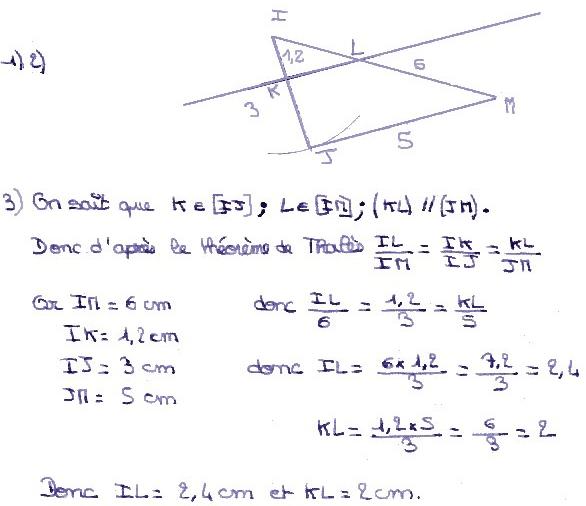 1) 2)
I
1,2
L
6
K
3
M
J
5
3) On sait que K ∈ [IJ] ; L ∈ [IM] ; (KL) // (JM).
Donc d'après le théorème de Thalès IL/IM = IK/IJ = KL/JM
Or IM = 6 cm donc IL/6 = 1,2/3 = KL/5
IK = 1,2 cm
IJ = 3 cm donc IL = 6 x 1,2/3 = 7,2/3 = 2,4
JM = 5 cm
KL = 1,2 x 5/3 = 6/3 = 2
Donc IL = 2,4 cm et KL = 2 cm.